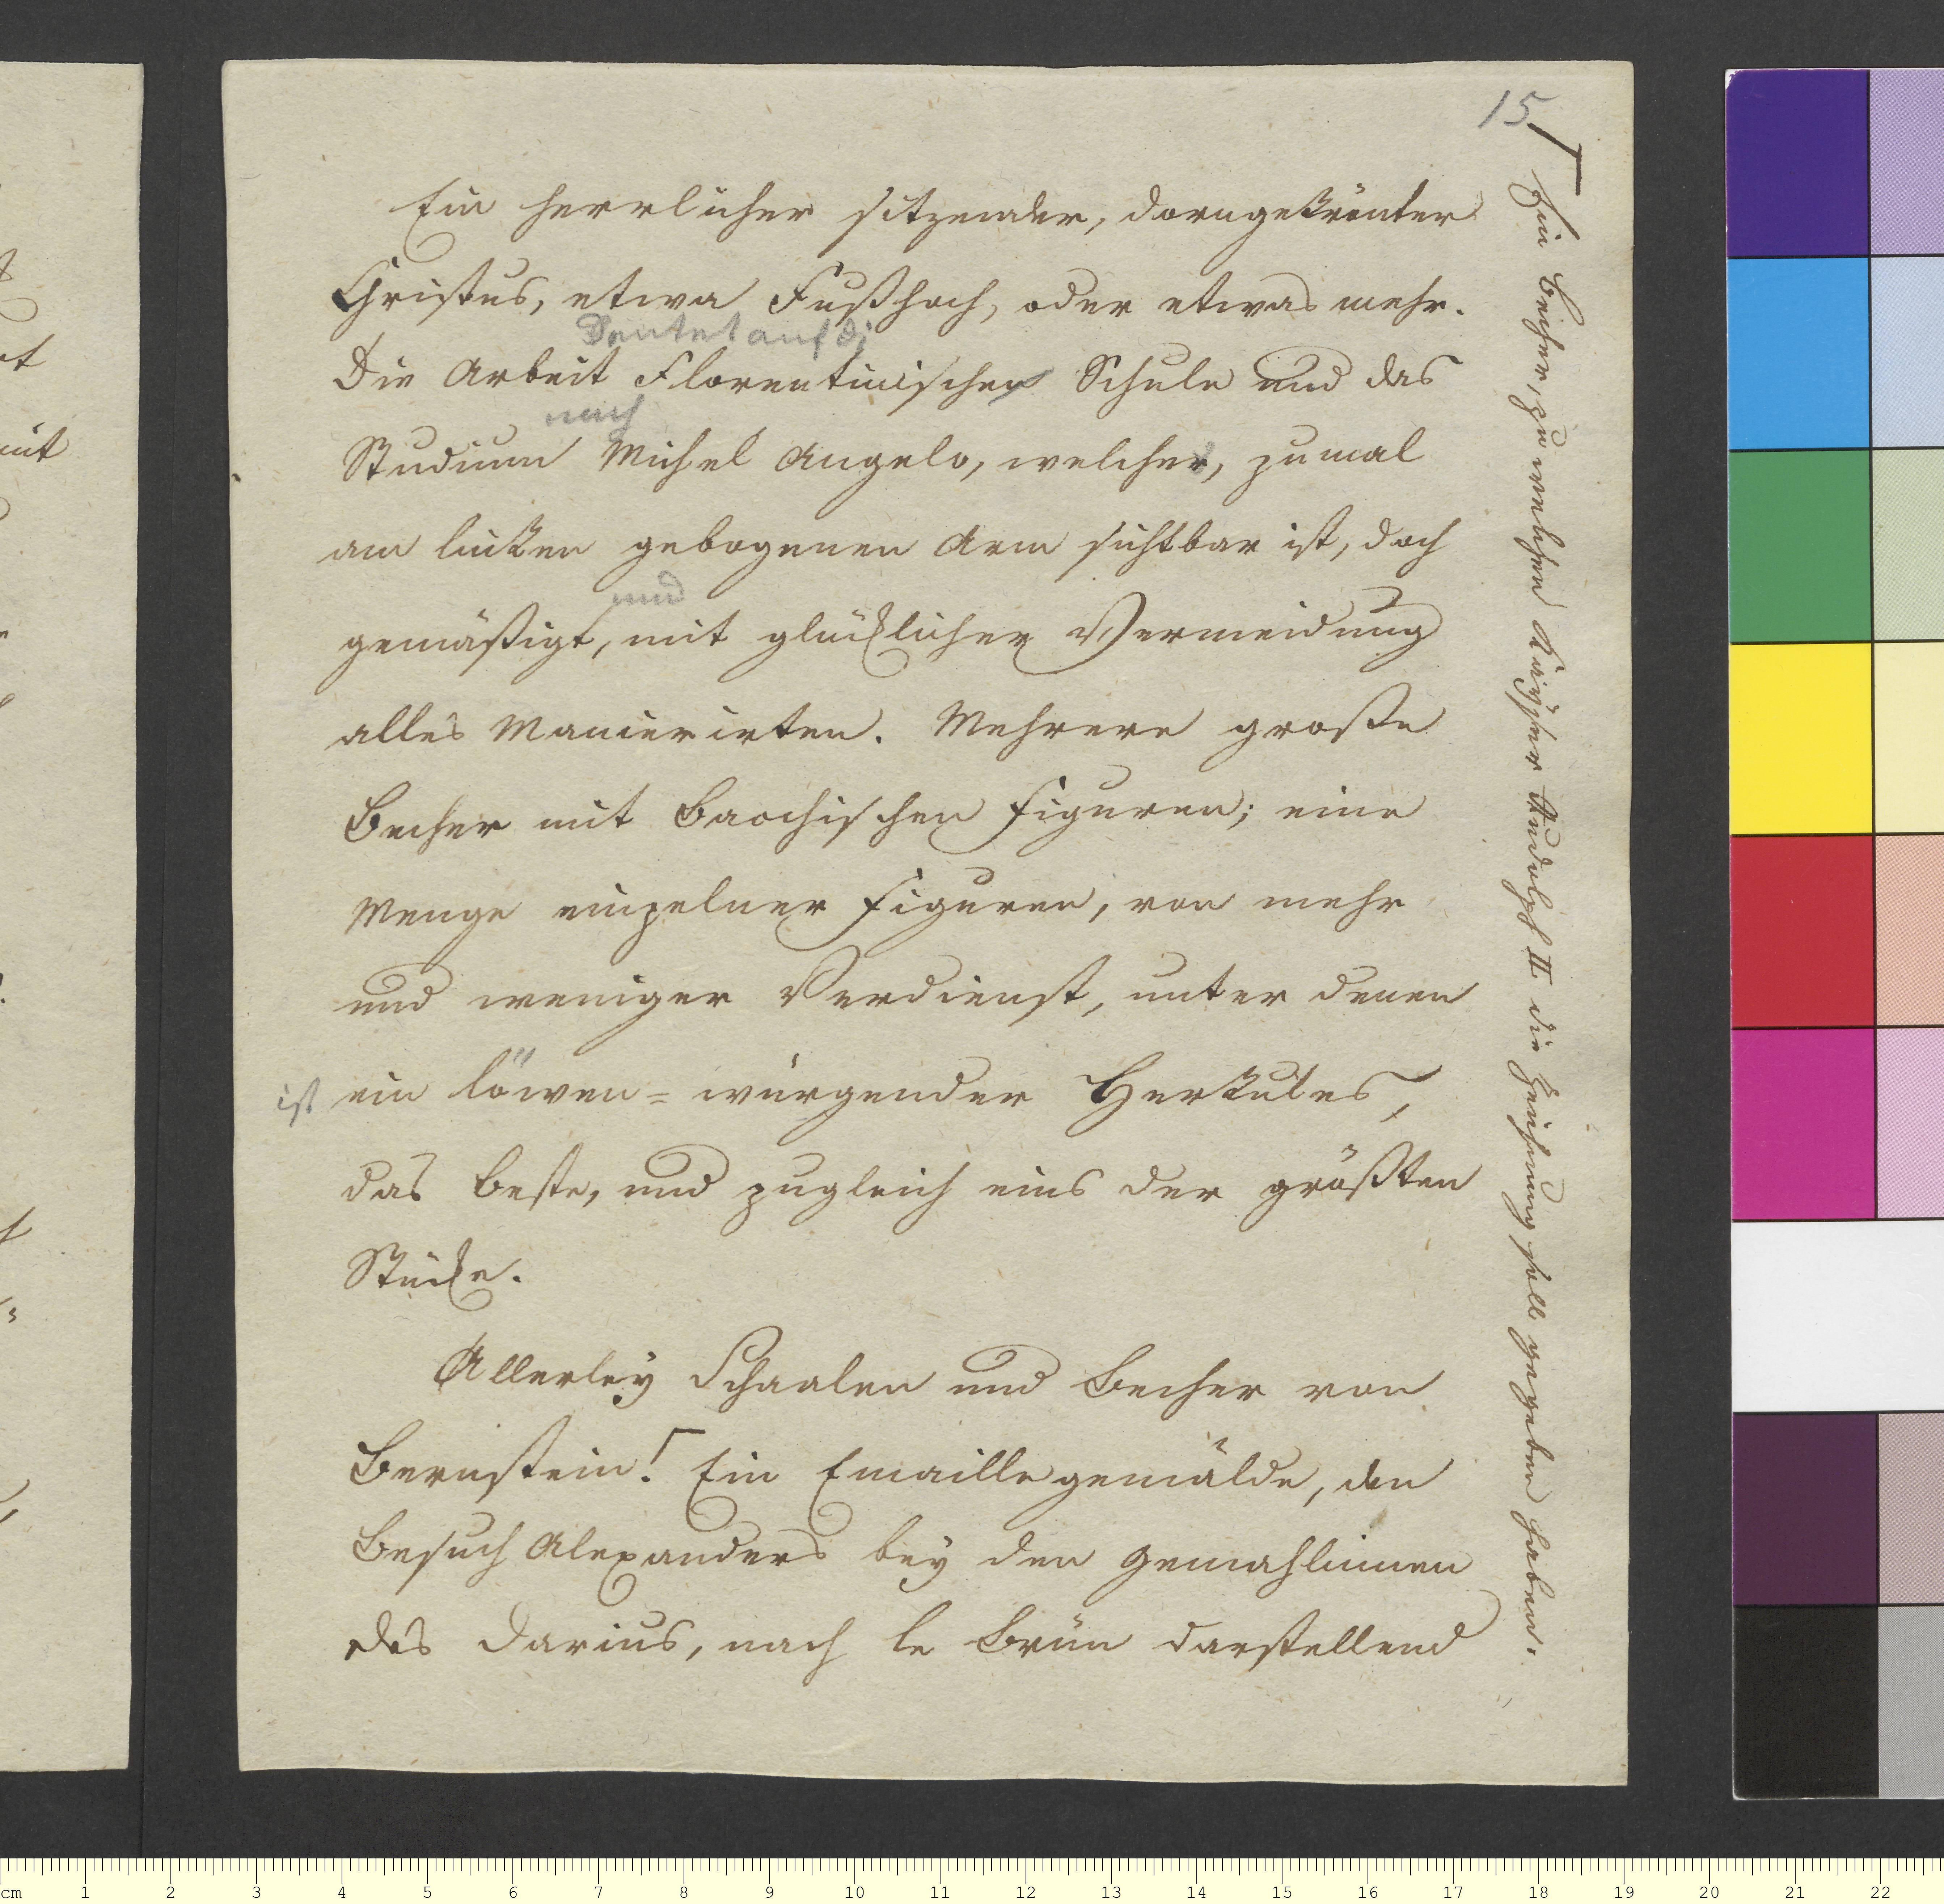 15
Ein herrlicher sitzender, dorngekrönter
Christus, etwa Fußhoch, oder etwas mehr.
Deutet auf di
Die Arbeit Florentinischen Schule und das
nach
Studium Michel Angelo, welches, zumal
am linken gebogenen Arm sichtbar ist, doch
und
gemäßigt, mit glücklicher Vermeidung
alles Manierirten. Mehrere große
Becher mit Bacchischen Figuren; eine
Menge einzelner Figuren, von mehr
und weniger Verdienst, unter denen
ist ein löwen-würgender Herkules,
das beste, und zugleich eins der größten
Stücke.
Allerley Schaalen und Becher von
Bernstein.⌈ Ein Emaillegemälde, den
Besuch Alexanders bey den Gemahlinnen
des Darius, nach le Brün darstellend
⌈ Ein Becher, zu welchen Kayser Rudolph II die Zeichnung soll gegeben haben.